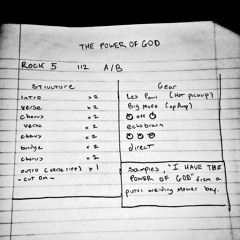 THE POWER OF GOD
ROCK 5 112 A/B
Structure
intro x 2
verse x 2
chorus x 2
verse x 2
chorus x 2
bridge x 2
chorus x 2
outro (verse riff) x 1
- CUT Dm -
Gear
Les Paul (Hot pickup)
Big Muff (op Amp)
off
echobrain
direct
Samples, "I HAVE THE
POWER OF GOD" from a
putrid weirding mower boy.